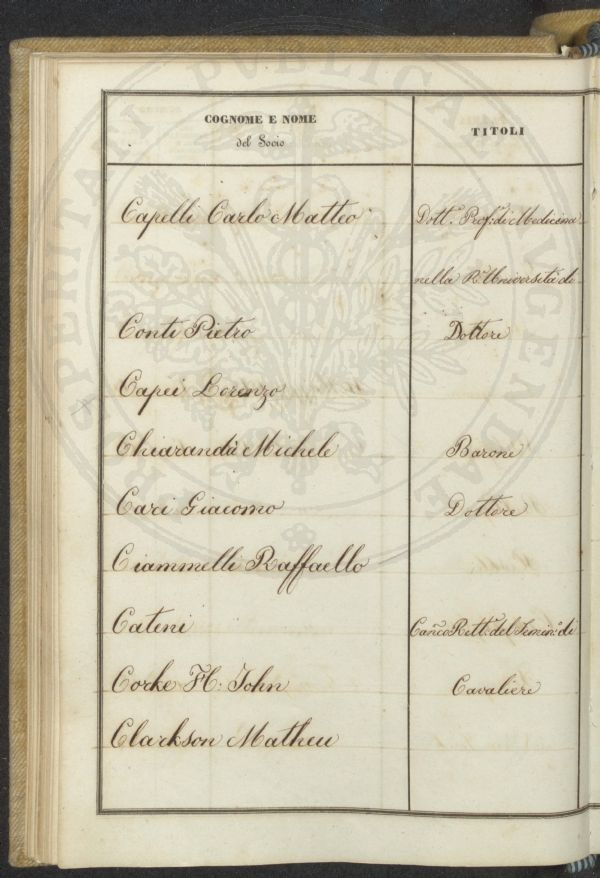 PROSPERITATI PUBLICAE AUGENDAE
COGNOME E NOME
del Socio
TITOLI
Capelli Carlo Matteo Dott. Prof. di Medicina
nella R. Università di
Conti Pietro Dottore
Capei Lorenzo
Chiarandà Michele Barone
Cari Giacomo Dottore
Ciammelli Raffaello
Cateni Canco Rett. del Semin.o di
Corke H: John Cavaliere
Clarkson Matheu